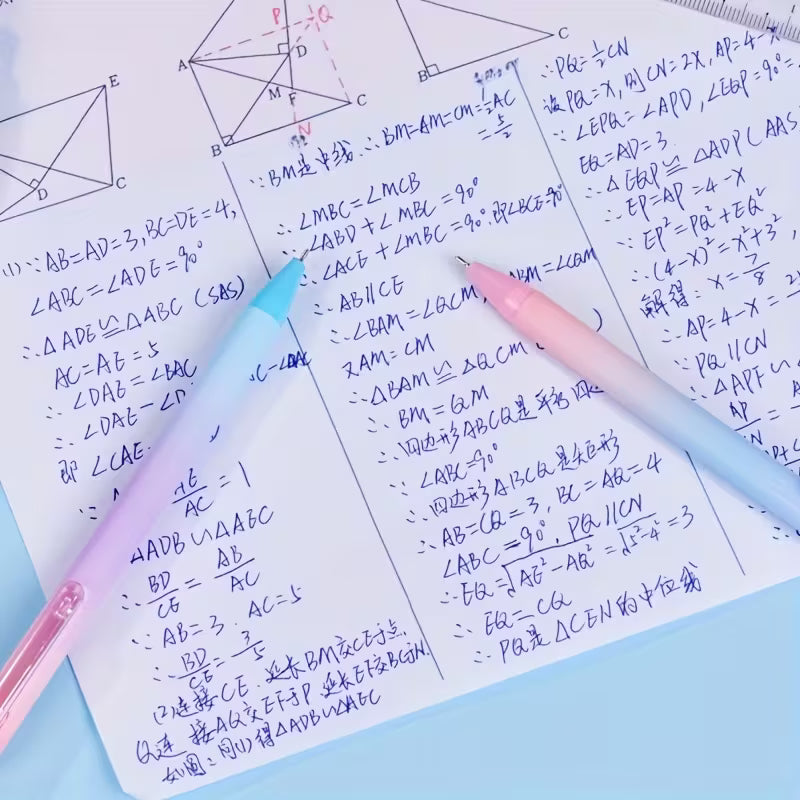 E
D
C
A
P
Q
D
M
F
C
B
N
B
C
(1)∵AB=AD=3,BC=DE=4,
∠ABC=∠ADE=90°
∴△ADE≌△ABC (SAS)
AC=AE=5
∴∠DAE=∠BAC
∴∠DAE-∠D
即∠CAE
∵
AE/AC=1
△ADB∽△AEC
∴BD/CE=AB/AC
∵AB=3.AC=5
∴BD/CE=3/5
(2)连接CE.延长BM交CE于点
Q连接AQ交EF于P延长EF交BC于N.
如图:同(1)得△ADB∽△AEC
∵BM是中线.∴BM=AM=CM=½AC
=5/2
∴∠MBC=∠MCB
∵∠ABD+∠MBC=90°
∴∠ACE+∠MBC=90°.即∠BCE=90°
∴AB∥CE
∴∠BAM=∠QCM,∠ABM=∠CQM
又AM=CM
∴△BAM≌△QCM
∴BM=QM
∴四边形ABCQ是平行四边
∵∠ABC=90°
∴四边形ABCQ是矩形
∴AB=CQ=3,BC=AQ=4
∠ABC=90°.PQ∥CN
∴EQ=√AE²-AQ²=√5²-4²=3
∴EQ=CQ
∴PQ是△CEN的中位线
∴PQ=½CN
设PQ=X,则CN=2X,AP=4-X
∵∠EPQ=∠APD,∠EQP=90°=
EQ=AD=3.
∴△EQP≌△ADP(AAS
∴EP=AP=4-X
∵EP²=PQ²+EQ²
∴(4-X)²=X²+3²,
解得:X=7/8
∴AP=4-X=
∵PQ∥CN
∴△APF∽
AP